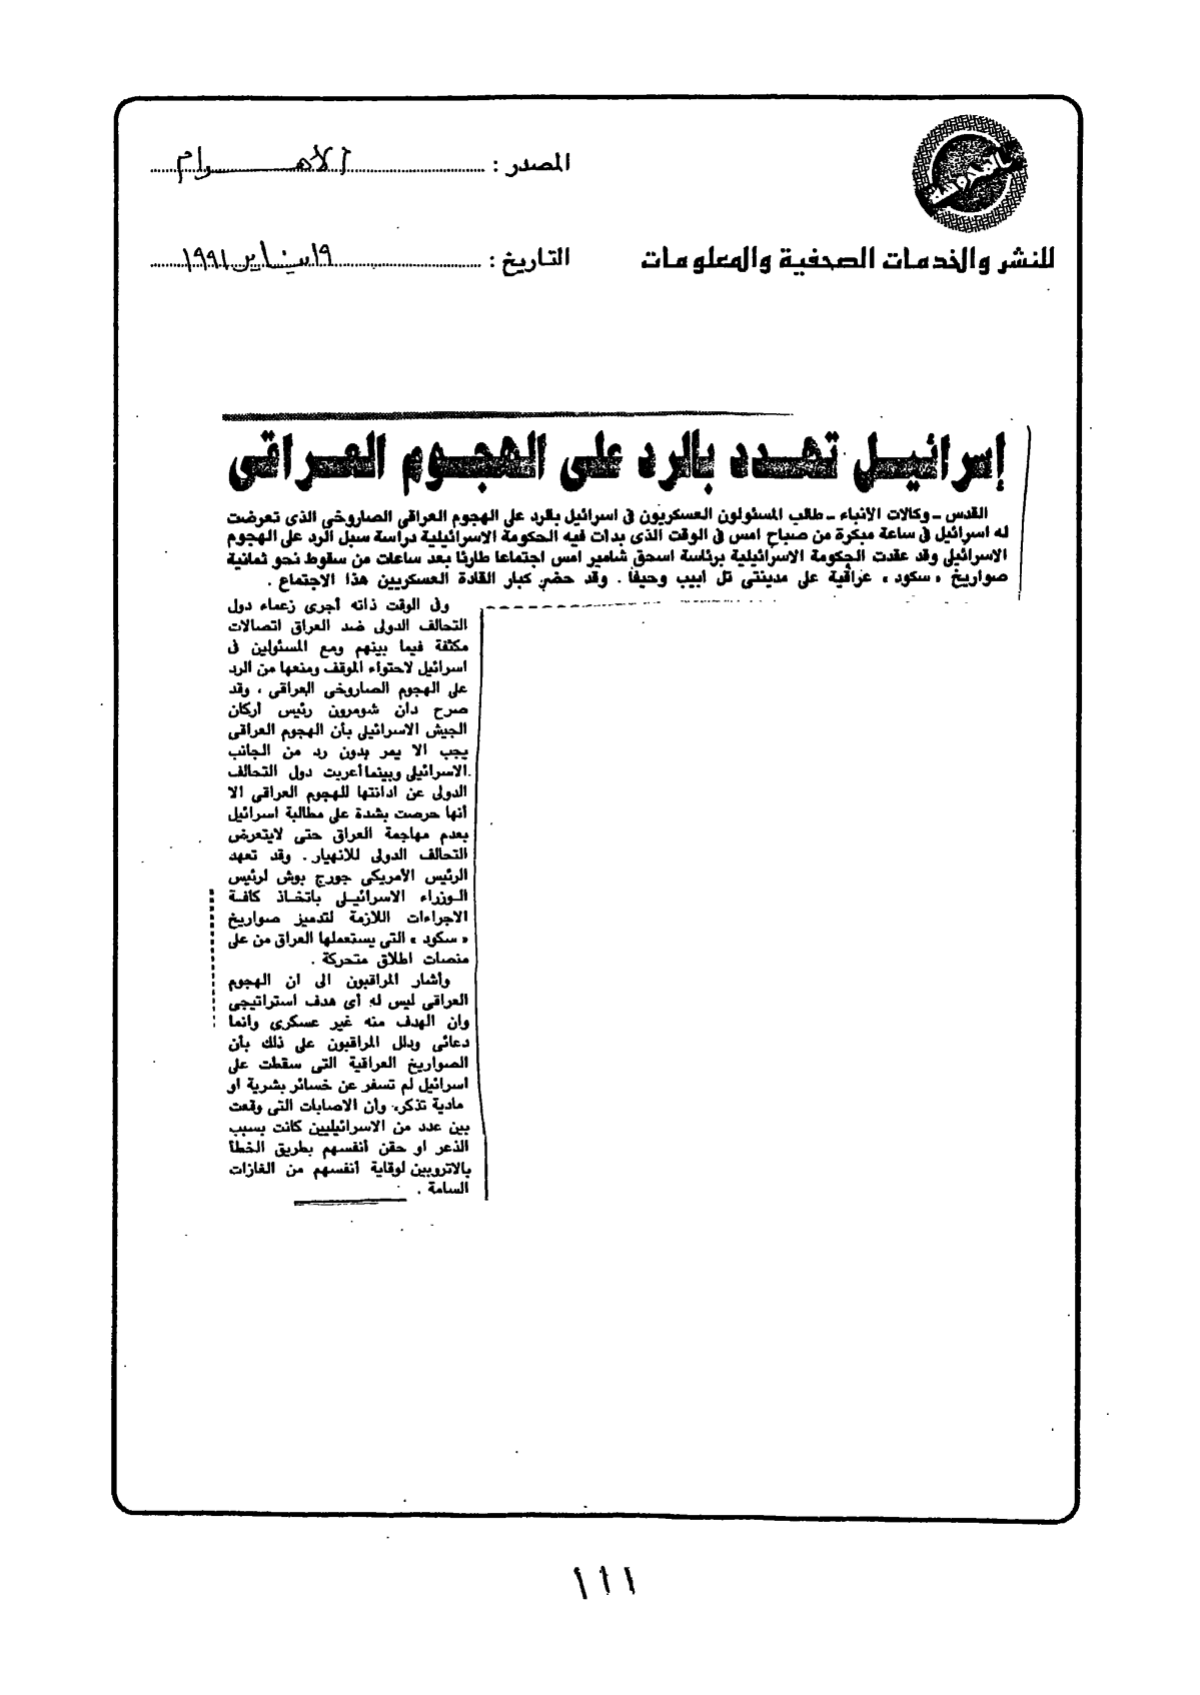 المصدر : الأهـــــرام
للنشر والخدمات الصحفية والمعلومات
التاريخ : ١٩ يناير ١٩٩١
إسرائيل تهدد بالرد على الهجوم العراقى
القدس ـ وكالات الانباء ـ طالب المسئولون العسكريون فى اسرائيل بالرد على الهجوم العراقى الصاروخى الذى تعرضت
له اسرائيل فى ساعة مبكرة من صباح امس فى الوقت الذى بدات فيه الحكومة الاسرائيلية دراسة سبل الرد على الهجوم
الاسرائيلى وقد عقدت الحكومة الاسرائيلية برئاسة اسحق شامير امس اجتماعا طارئا بعد ساعات من سقوط نحو ثمانية
صواريخ « سكود » عراقية على مدينتى تل ابيب وحيفا . وقد حضر كبار القادة العسكريين هذا الاجتماع .
وفى الوقت ذاته أجرى زعماء دول
التحالف الدولى ضد العراق اتصالات
مكثفة فيما بينهم ومع المسئولين فى
اسرائيل لاحتواء الموقف ومنعها من الرد
على الهجوم الصاروخى العراقى ، وقد
صرح دان شومرون رئيس اركان
الجيش الاسرائيلى بأن الهجوم العراقى
يجب الا يمر بدون رد من الجانب
الاسرائيلى وبينما أعربت دول التحالف
الدولى عن ادانتها للهجوم العراقى الا
أنها حرصت بشدة على مطالبة اسرائيل
بعدم مهاجمة العراق حتى لايتعرض
التحالف الدولى للانهيار . وقد تعهد
الرئيس الأمريكى جورج بوش لرئيس
الوزراء الاسرائيلى باتخاذ كافة
الاجراءات اللازمة لتدمير صواريخ
« سكود » التى يستعملها العراق من على
منصات اطلاق متحركة .
وأشار المراقبون الى ان الهجوم
العراقى ليس له أى هدف استراتيجى
وان الهدف منه غير عسكرى وانما
دعائى ودلل المراقبون على ذلك بأن
الصواريخ العراقية التى سقطت على
اسرائيل لم تسفر عن خسائر بشرية او
مادية تذكر، وأن الاصابات التى وقعت
بين عدد من الاسرائيليين كانت بسبب
الذعر او حقن أنفسهم بطريق الخطأ
بالاتروبين لوقاية أنفسهم من الغازات
السامة .
١١١